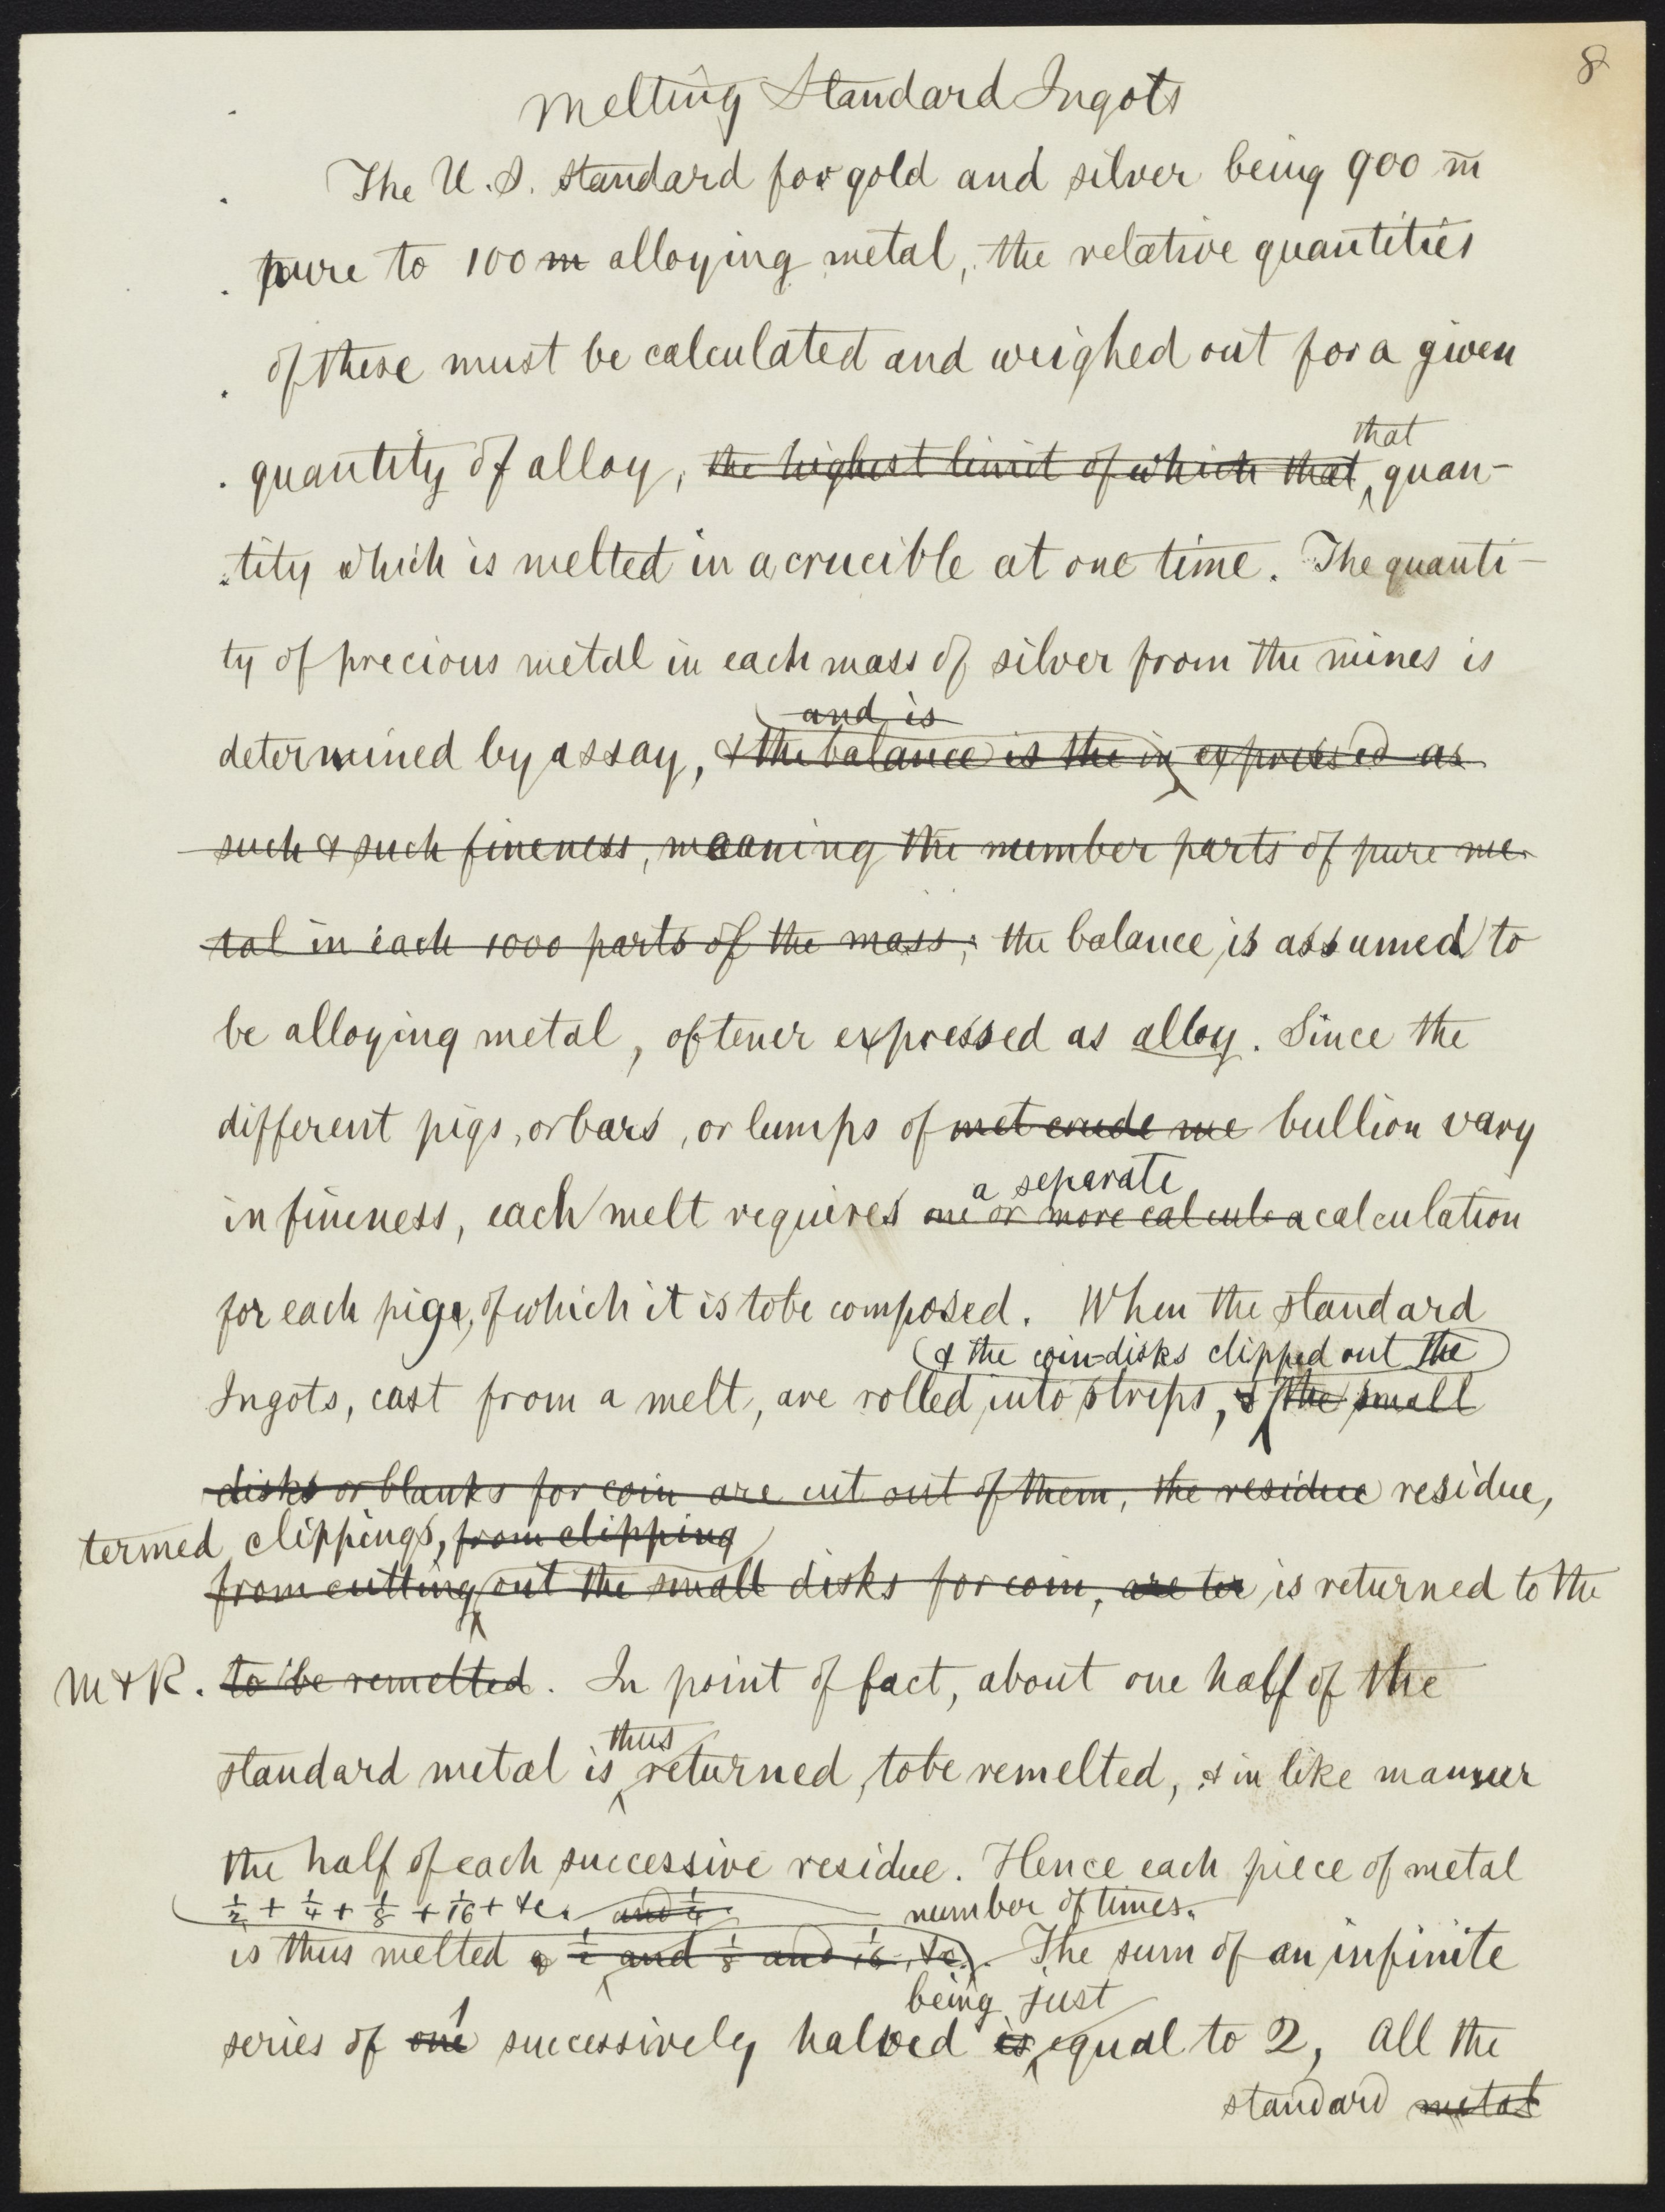 8
Melting Standard Ingots
The U.S. standard for gold and silver being 900 m
pure to 100 m alloying metal, the relative quantities
of these must be calculated and weighed out for a given
that
quantity of alloy, the highest limit of which that quan-
tity which is melted in a crucible at one time. The quanti-
ty of precious metal in each mass of silver from the mines is
and is
determined by assay, & the balance is the in expressed as
such & such fineness, meaning the number parts of pure me-
tal in each 1000 parts of the mass; the balance is assumed to
be alloying metal, oftener expressed as alloy. Since the
different pigs, or bars, or lumps of met crude me bullion vary
a separate
in fineness, each melt requires one or more calcul a calculation
for each pig, of which it is to be composed. When the standard
& the coin-disks clipped out the
Ingots, cast from a melt, are rolled into strips, & the small
disks or blanks for coin are cut out of them, the residue residue,
termed clippings, from clipping
from cutting out the small disks for coin, are ter is returned to the
M & R. to be remelted. In point of fact, about one half of the
thus
standard metal is returned, to be remelted, & in like manner
the half of each successive residue. Hence each piece of metal
1/2 + 1/4 + 1/8 + 1/16 + &c. and 1/4 number of times.
is thus melted 1/2 and 1/8 and 1/16, &c. The sum of an infinite
being just
series of one 1 successively halved is equal to 2, All the
standard metal